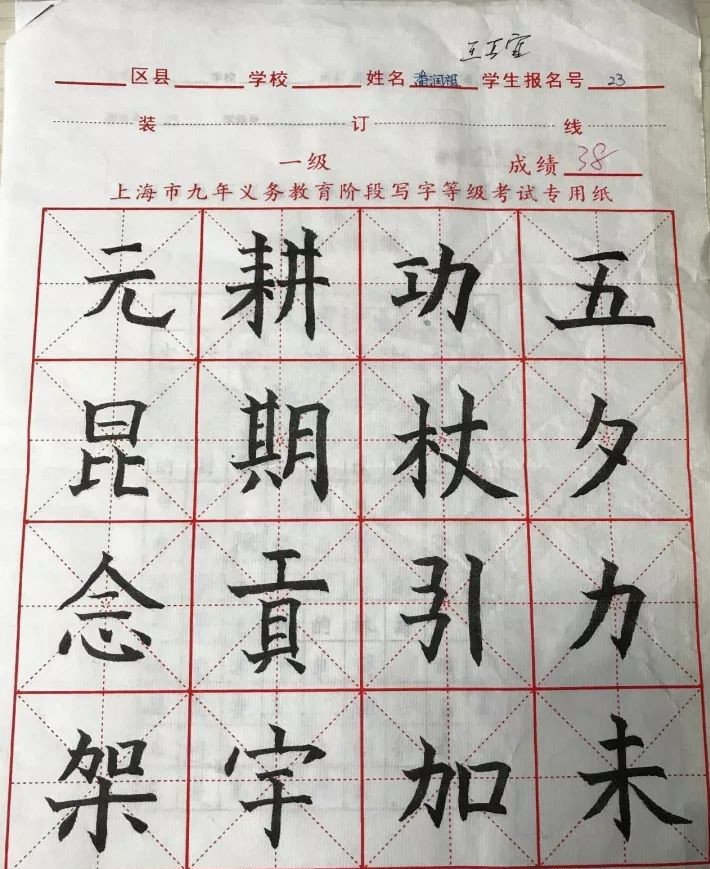 区县 学校 姓名 潘润祖 学生报名号 23
装 订 线
一级 成绩 38
上海市九年义务教育阶段写字等级考试专用纸
元 耕 功 五
昆 期 杖 夕
念 貢 引 力
架 宇 加 未